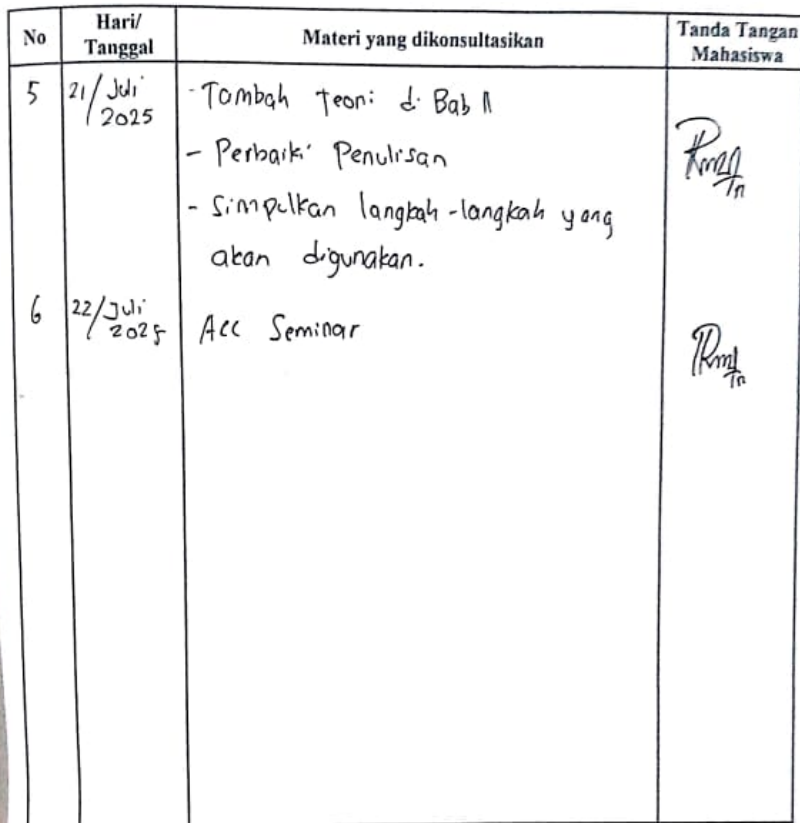 No Hari/ Tanggal Materi yang dikonsultasikan Tanda Tangan Mahasiswa
5 21/Juli 2025 - Tambah Teori di Bab II
- Perbaiki Penulisan
- Simpulkan langkah-langkah yang
akan digunakan.
6 22/Juli 2025 Acc Seminar